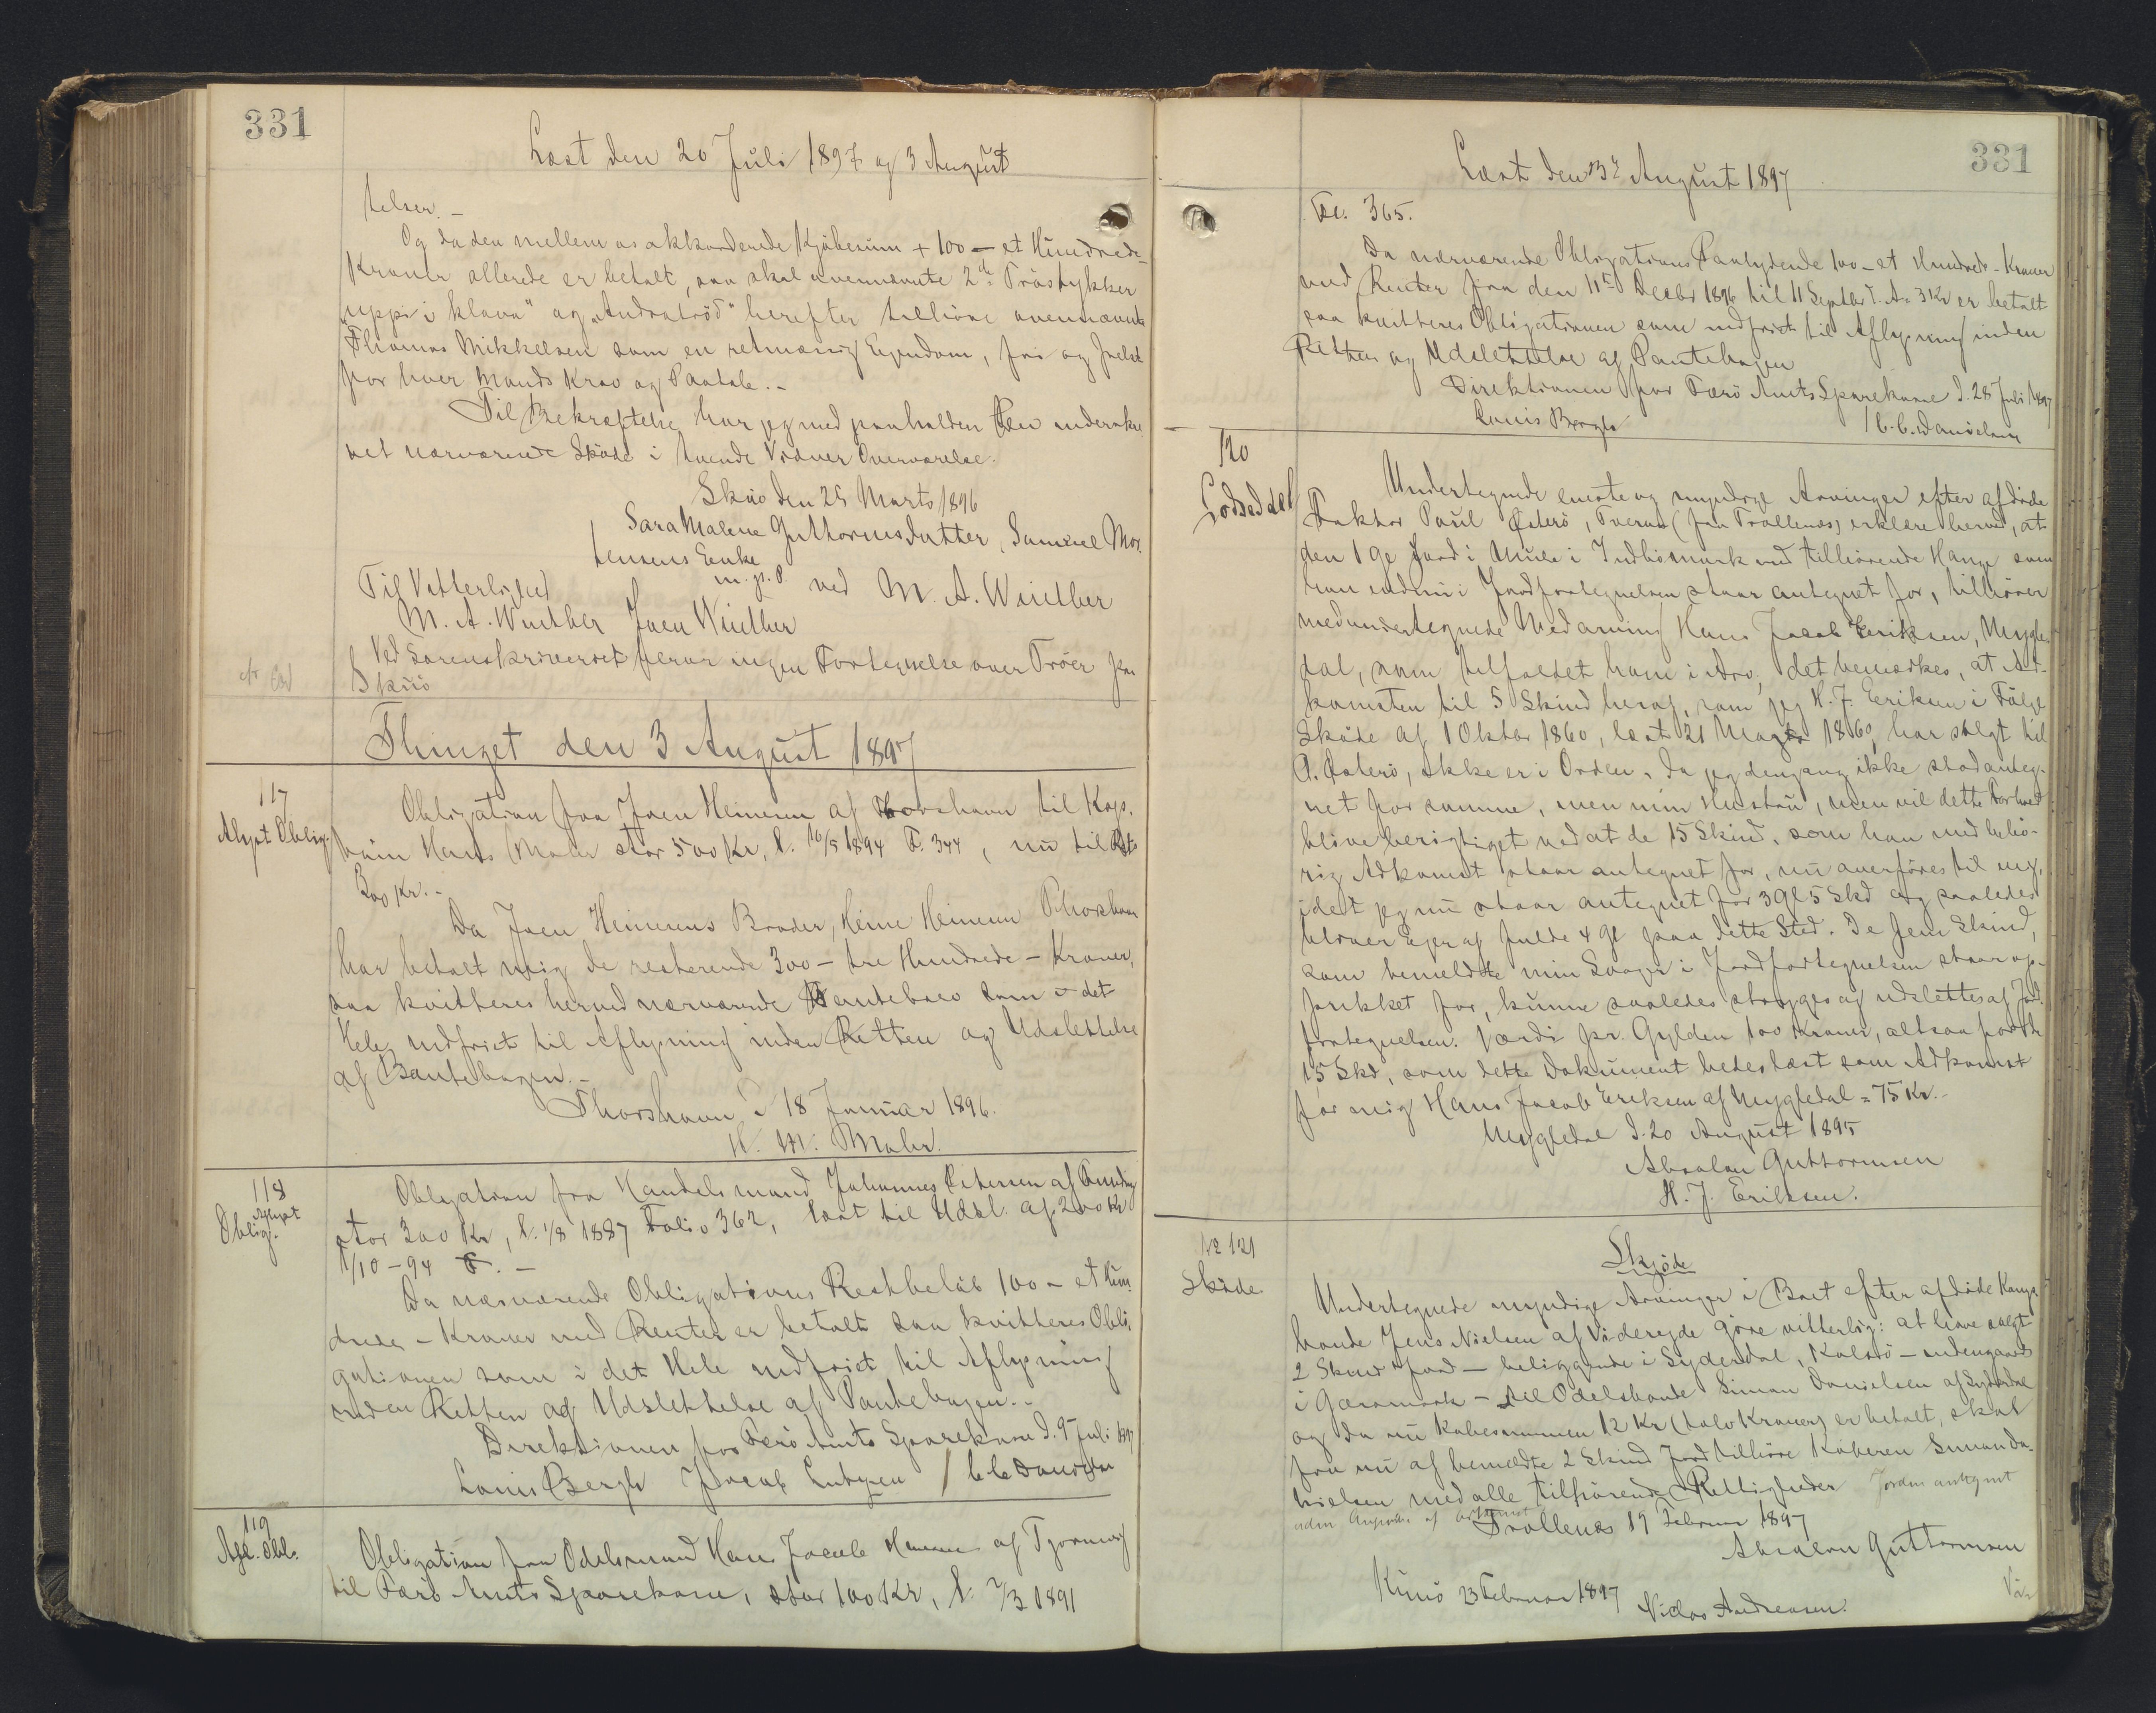 331
Læst den 20 Juli 1897 og 3 August
telser. -
Og da den mellem os akkorderede Kjøbesum + 100 - et Hundrede-
Kroner allerede er betalt, saa skal ovennævnte 2de Tröstykker
"uppi i klova" og "Andratröd" herefter tilhöre ovennævnte
Thomas Mikkelsen som en retmæssig Ejendom, fri og frelst
for hver Mands Krav og Paatale. -
Til Bekræftelse har jeg med paaholden Pen underskre
vet nærværende Sköde i tvende Vidner Overværelse.
Skuö den 25 Marts 1896
Sara Malene Guttormsdatter, Samuel Mor
tensens Enke
m. p. P. ved M. A. Winther
Til Vitterlighed
M. A. Winther Joen Winther
Ved Sorenskriveriet forer ingen Fortegnelse over Tröer paa
Skuö
Thinget den 3 August 1897
117
Aflyst Oblig.
Obligation fra Joen Heinesen af Thorshavn til Kjøb.
Hans Mohr stor 500 Kr, l. 10/5 1894 F. 344, nu til Rest
300 Kr. -
Da Joen Heinesens Broder, Heine Heinesen Thorshavn
har betalt mig de resterende 300 - tre Hundrede - Kroner,
saa kvitteres herved nærværende Pantebrev som i det
Hele indfriet til Aflysning inden Retten og Udslettelse
af Pantebogen. -
Thorshavn d 18 Januar 1896.
H. M. Mohr.
118
Aflyst
Oblig.
Obligation fra Handelsmand Johannes Petersen af Funding
stor 300 Kr, l. 1/8 1887 Folio 362, læst til Udsl. af 200 Kr
1/10 - 94 F. -
Da nærværende Obligations Restbeløb 100 - et Hun
drede - Kroner med Renter er betalt saa kvitteres Obli
gationen som i det Hele indfriet til Aflysning
inden Retten og Udslettelse af Pantebogen. -
Direktionen for Færö Amts Sparekasse d. 9 Juli 1897
Louis Bergh Jacob Lützen / C.C. Danielsen
119
Afl. Obl.
Obligation fra Odelsmand Hans Jacob Hansen af Tjörnevig
til Færö Amts Sparekasse, stor 100 Kr, l. 7/3 1891
331
Læst den 3de August 1897
Fol. 365.
Da nærværende Obligations Paalydende 100 - et Hundrede - Kroner
med Renter fra den 11te Decbr 1896 til 11 Septbr d. A. = 3 Kr er betalt
saa kvitteres Obligationen som indfriet til Aflysning inden
Retten og Udslettelse af Pantebogen
Direktionen for Færö Amts Sparekasse d. 28 Juli 1897
Louis Bergh / C. C. Danielsen
120
Lodseddel
Undertegnede eneste og myndige Arvinger efter afdöde
Faktor Poul Österö, Tveraa (fra Trollenæs) erklære herved, at
den 1 Gl Jord i Mule i Indbömark med tilhörende Hauge som
han endnu i Jordfortegnelsen staar antegnet for, tilhörer
medundertegnede Medarving Hans Jacob Eriksen, Mygle
dal, som tilfaldet ham i Arv, det bemærkes, at Ad-
komsten til 5 Skind heraf, som jeg H. J. Eriksen i Fölge
Sköde af 1 Oktbr 1860, læst 21 Marts 1860, har solgt til
P. Österö, ikke er i Orden, da jeg dengang ikke stod anteg-
net for samme, men min Hustru, men vil dette Forhold
blive berigtiget ved at de 15 Skind, som han med behö-
rig Adkomst staar antegnet for, nu overföres til mig,
idet jeg nu staar antegnet for 3 Gl 5 Skd og saaledes
bliver Ejer af fulde 4 Gl paa dette Sted. De fem Skind,
som bemeldte min Svoger i Jordfortegnelsen staar op-
prikket for, kunne saaledes stryges og udslettes af Jord
fortegnelsen. Værdi pr. Gylden 100 Kroner, altsaa for de
15 Skd, som dette Dokument bedes læst som Adkomst
for mig Hans Jacob Eriksen af Mygledal = 75 Kr. -
Mygledal d. 20 August 1895
Absalon Guttormsen
H. J. Eriksen.
No 121
Sköde
Skjöde
Undertegnede myndige Arvinger i Boet efter afdöde Kongs
bonde Jens Nielsen af Videreyde göre vitterlig: at have solgt
2 Skind Jord - beliggende i Syderdal, Kalsö - indengaards
i Gæramark - til Odelsbonde Simon Danielsen af Syderdal
og da nu Købesummen 12 Kr (tolv Kroner) er betalt, skal
fra nu af bemeldte 2 Skind Jord tilhöre Köberen Simon Da-
nielsen med alle tilhörende Rettigheder Jorden antegnet
uden Angivelse af Adkomst
Trollenæs 19 Februar 1897
Absalon Guttormsen
Kunö 23 Februar 1897 Niclas Andreasen.